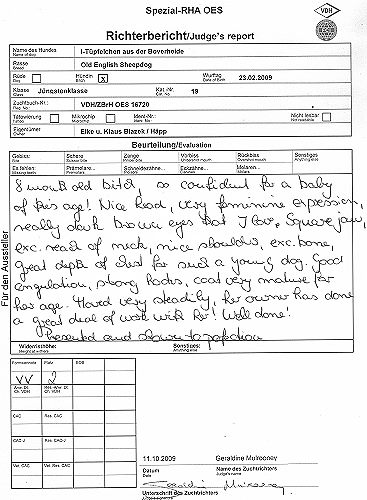 Spezial-RHA OES
VDH
Richterbericht/Judge's report
Name des Hundes I-Tüpfelchen aus der Boverheide
Name of dog
Rasse Old English Sheepdog
Breed
Rüde Hündin X Wurftag 23.02.2009
Dog Bitch Date of Birth
Klasse Jüngstenklasse Kat.-Nr. 19
Class Cat. No.
Zuchtbuch-Nr.: VDH/ZBrH OES 16720
Tätowierung Mikrochip Ident.-Nr.: Nicht lesbar
Tattoo Microchip Not readable
Eigentümer Elke u. Klaus Blazek / Häpp
Owner
Beurteilung/Evaluation
Gebiss: Schere Zange Vorbiss Rückbiss Sonstiges
Es fehlen: Prämolare... Schneidezähne... Eckzähne... Molaren...
8 month old bitch, so confident for a baby
of this age! Nice head, very feminine expression,
really dark brown eyes that I love. Square jaw,
exc. reach of neck, nice shoulders, exc. bone,
great depth of chest for such a young dog. Good
angulation, strong hocks, coat very mature for
her age. Moved very steadily, her owner has done
a great deal of work with her! Well done!
Presented and shown to perfection
Für den Aussteller
Widerristhöhe: Sonstiges:
Height at withers Anything else
Formwertnote Platz BOB
VV 2
CAC Res. CAC
CAC-J Res. CAC-J
Vet. CAC Vet. Res. CAC
11.10.2009 Geraldine Mulrooney
Datum Name des Zuchtrichters
Date Judge's name
Geraldine Mulrooney
Unterschrift des Zuchtrichters